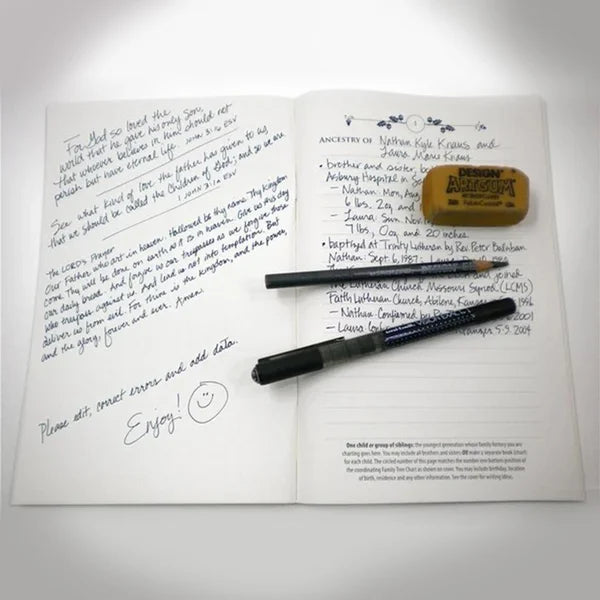 For God so loved the
world that he gave his only Son,
that whoever believes in him should not
perish but have eternal life. JOHN 3:16 ESV
See what kind of love the father has given to us
that we should be called the children of God; and so we are.
1 JOHN 3:1a ESV
The LORD'S Prayer
Our Father who art in heaven. Hallowed be thy name. Thy Kingdom
come. Thy will be done on earth as it is in heaven. Give us this day
our daily bread. And forgive us our trespasses as we forgive those
who trespass against us. And lead us not into temptation. But
deliver us from evil. For thine is the kingdom, and the power,
and the glory, forever and ever. Amen.
Please edit, correct errors and add data.
Enjoy!
1
ANCESTRY OF Nathan Kyle Knaus and
Laura Marie Knaus
• brother and sister, bo
Asbury Hospital in S
– Nathan: Mon, Aug
6 lbs. 2oz and
– Laura: Sun. Nov
7 lbs, 0oz and 20 inches.
• baptized at Trinity Lutheran by Rev. Peter
Nathan: Sept. 6, 1987
joined
The Lutheran Church Missouri Synod (LCMS)
Faith Lutheran Church, Abilene, Kansas 1996
– Nathan Confirmed by 2001
– Laura 5.3.2004
DESIGN
ARTGUM
One child or group of siblings: the youngest generation whose family history you are
charting goes here. You may include all brothers and sisters OR make a separate book (chart)
for each child. The circled number of this page matches the number one button position of
the coordinating Family Tree Chart as shown on cover. You may include birthday, location
of birth, residence and any other information. See the cover for writing ideas.